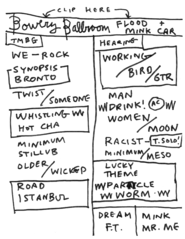 CLIP HERE
Bowery Ballroom
FLOOD +
MINK CAR
TMBG
WE-ROCK
SYNOPSIS
BRONTO
TWIST/
SOMEONE
WHISTLING
HOT CHA
MINIMUM
STILLUB
OLDER/
WICKED
ROAD
ISTANBUL
HEARING
WORKING/
BIRD/
GTR
MAN
DRINK!
AC
WOMEN/
MOON
RACIST-
T. SOLO!
MINIMUM/
MESO
LUCKY
THEME
PARTICLE
WORM
DREAM
F.T.
MINK
MR. ME